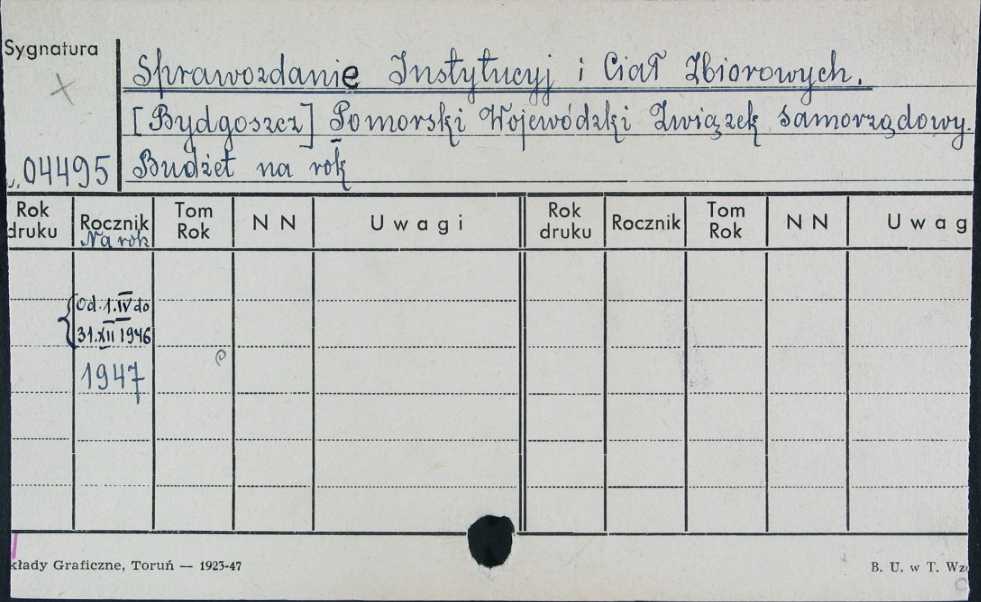 Sygnatura
Sprawozdanie Instytucyj i Ciał Zbiorowych.
[Bydgoszcz] Pomorski Wojewódzki Związek Samorządowy.
04495 Budżet na rok
Rok druku Rocznik Tom Rok NN Uwagi Rok druku Rocznik Tom Rok NN Uwag
Na rok
Od 1.IV do
31.XII 1946
1947
kłady Graficzne, Toruń — 1923-47 B. U. w T.